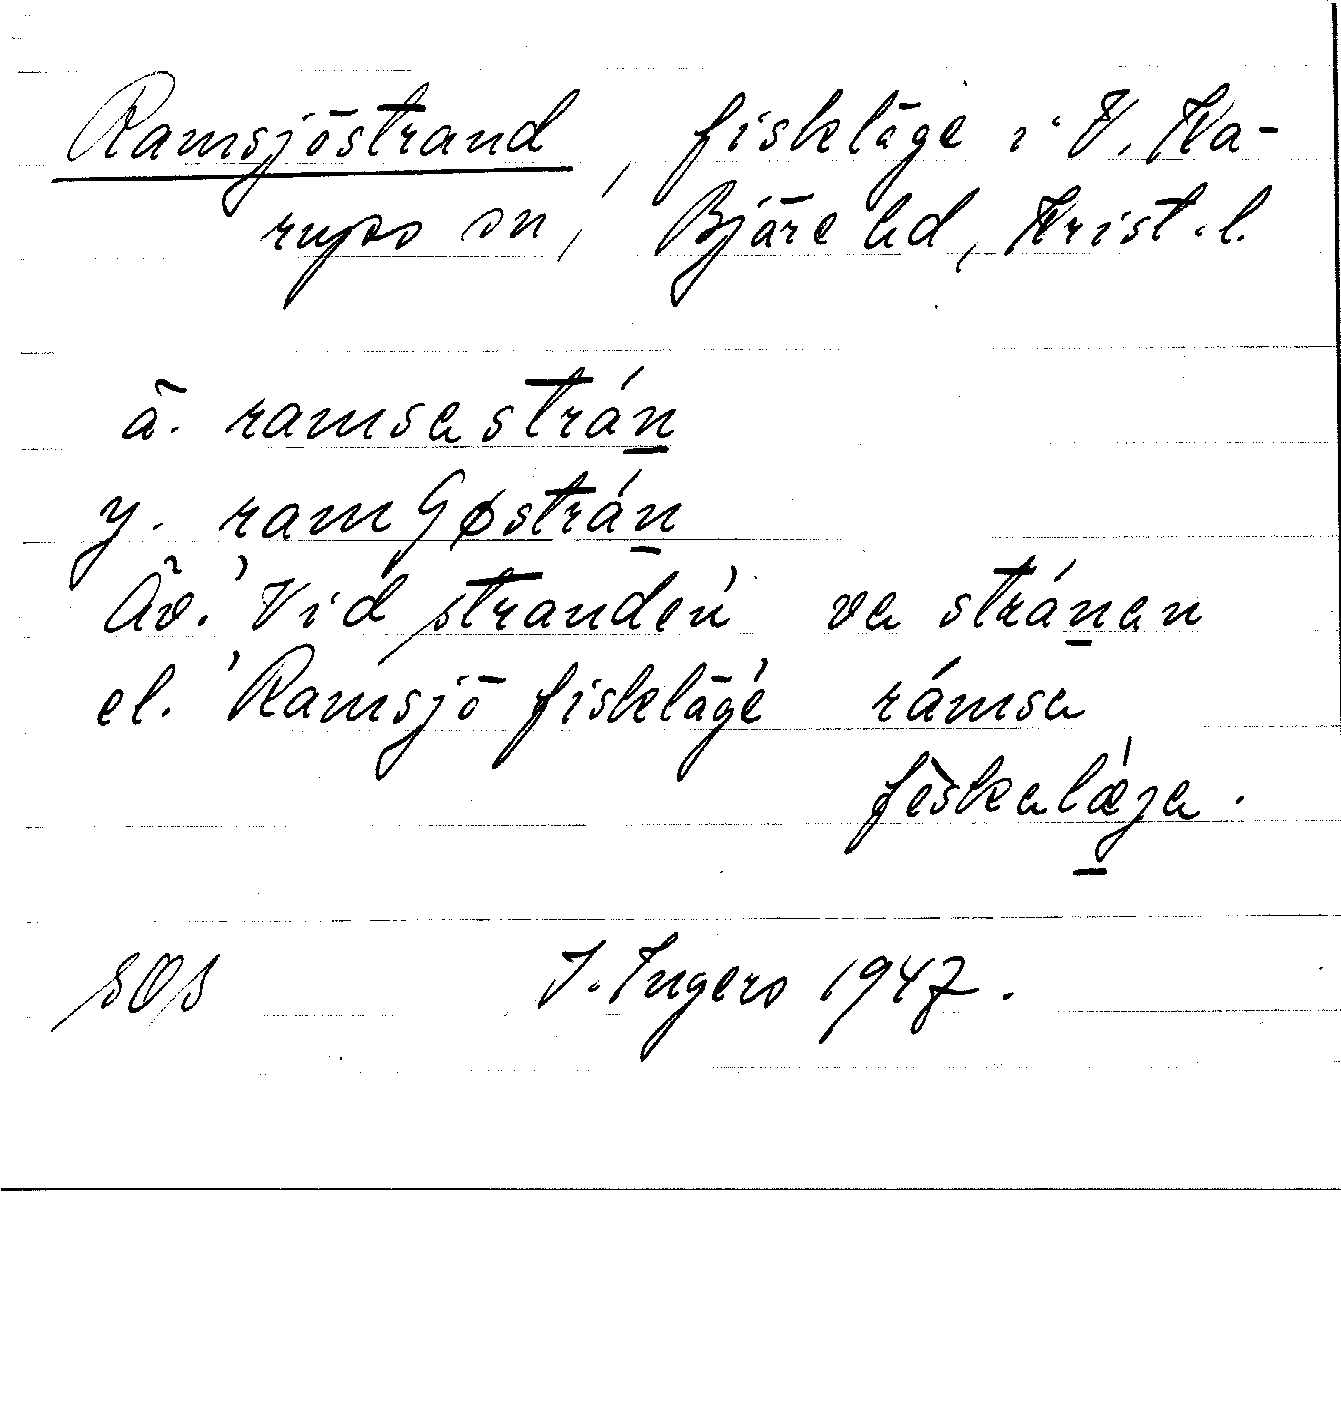 Ramsjöstrand, fiskläge i V. Ka-
rups sn, Bjäre hd, Krist.l.
ä. ramsəstrán
y. ramɕøstrán
Äv. 'Vid stranden' və stránən
el. 'Ramsjö fiskläge' rámsə
fèskəlǽjə.
SOS I. Ingers 1947.